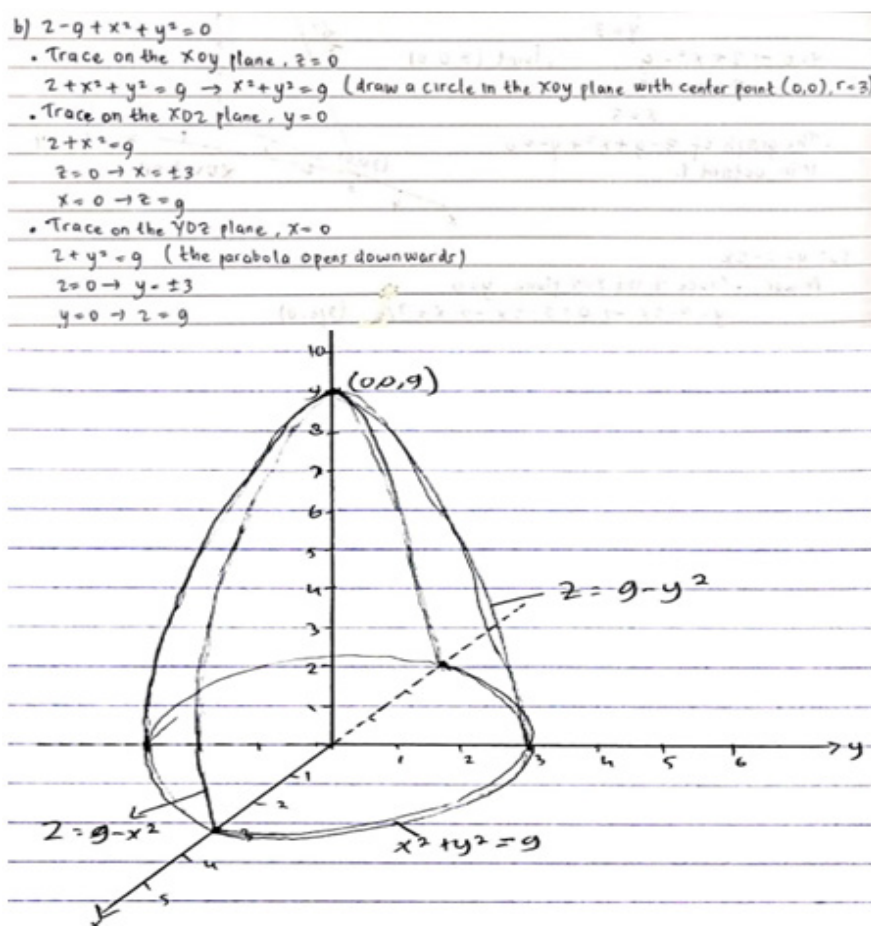 b) z-9+x²+y²=0
• Trace on the XOY plane, z=0
z+x²+y²=9 → x²+y²=9 (draw a circle in the XOY plane with center point (0,0), r=3)
• Trace on the XOZ plane, y=0
z+x²=9
z=0 → x=±3
x=0 → z=9
• Trace on the YOZ plane, x=0
z+y²=9 (the parabola opens downwards)
z=0 → y=±3
y=0 → z=9
10
9 (0,0,9)
8
7
6
5
4 z=9-y²
3
2
1
1 2 3 4 5 6 y
1
2
z=9-x² 3 x²+y²=9
4
5
x